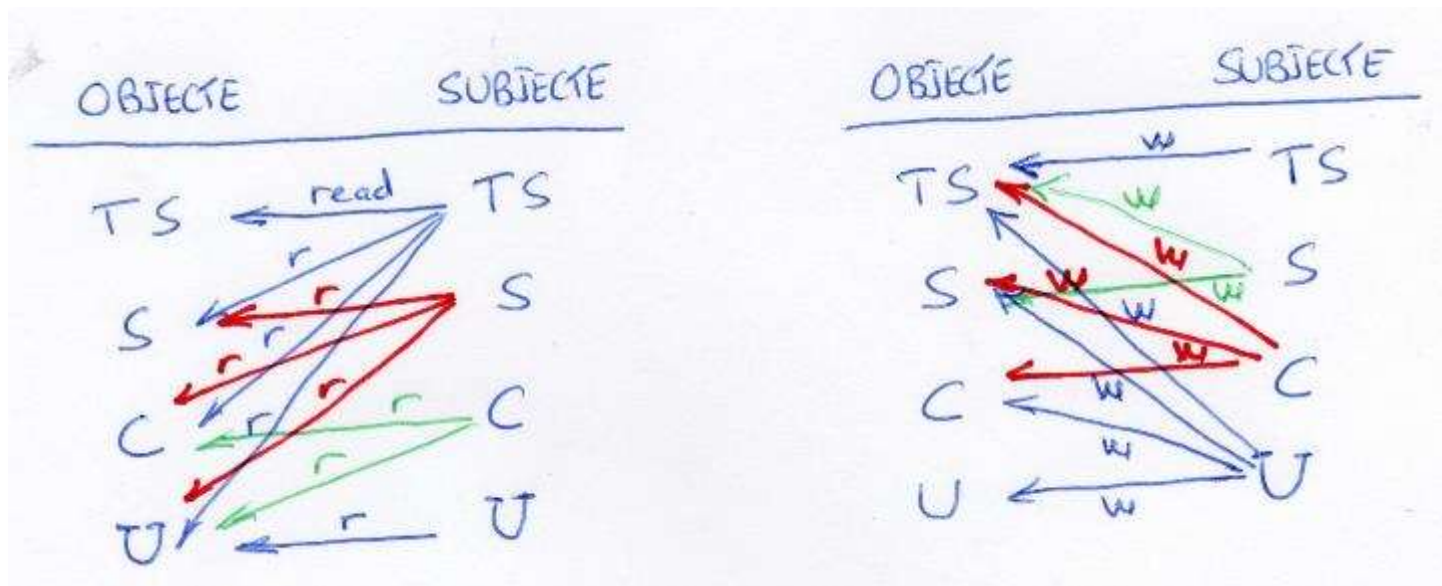 OBJECTE SUBJECTE
TS read TS
r
S r S
r
r
r
C r r C
r
U r U
OBJECTE SUBJECTE
TS w TS
w
w
S w w S
w
w
C w C
w
U w U